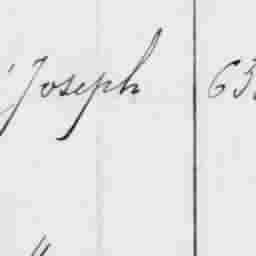 Joseph 63
"